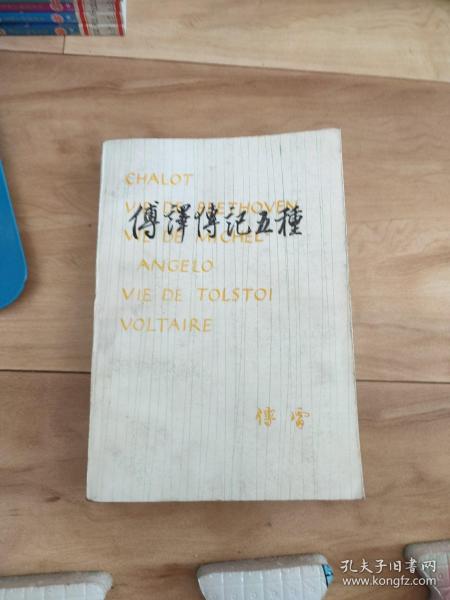 CHALOT
VIE DE BEETHOVEN
傅譯傳記五種
VIE DE MICHEL
ANGELO
VIE DE TOLSTOI
VOLTAIRE
傅雷
孔夫子旧书网
www.kongfz.com